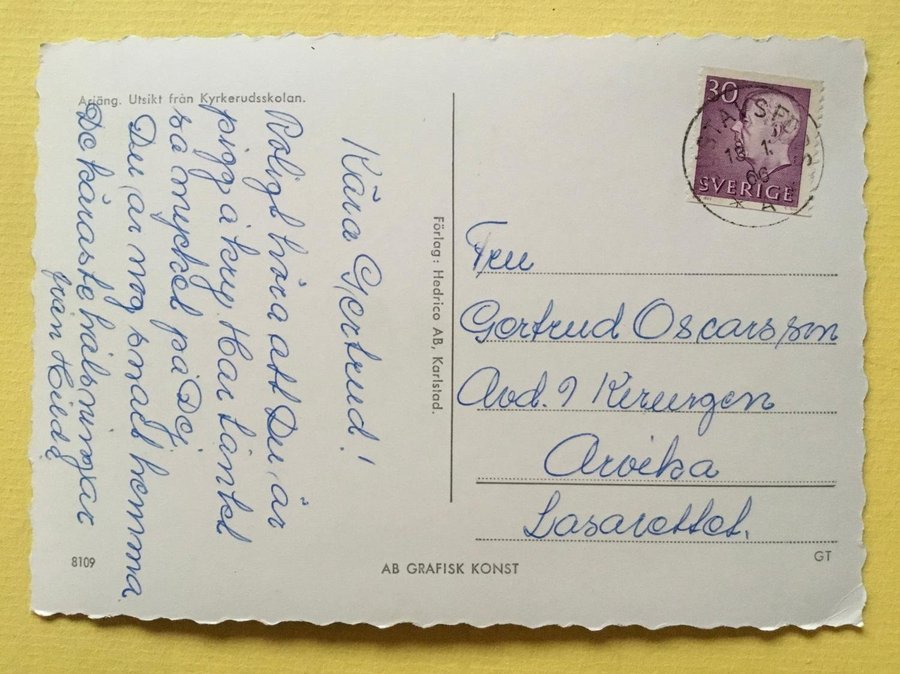 Årjäng. Utsikt från Kyrkerudsskolan.
Kära Gertrud!
Roligt höra att Du är
pigg å kry. Har tänkt
så mycket på Dej
Du är nog snart hemma
De käraste hälsningar
från Hilda
Förlag: Hedrico AB, Karlstad.
8109
AB GRAFISK KONST
GT
30
SVERIGE
66
A
Fru
Gertrud Oscarsson
Avd. 9 Kirurgen
Arvika
Lasarettet.